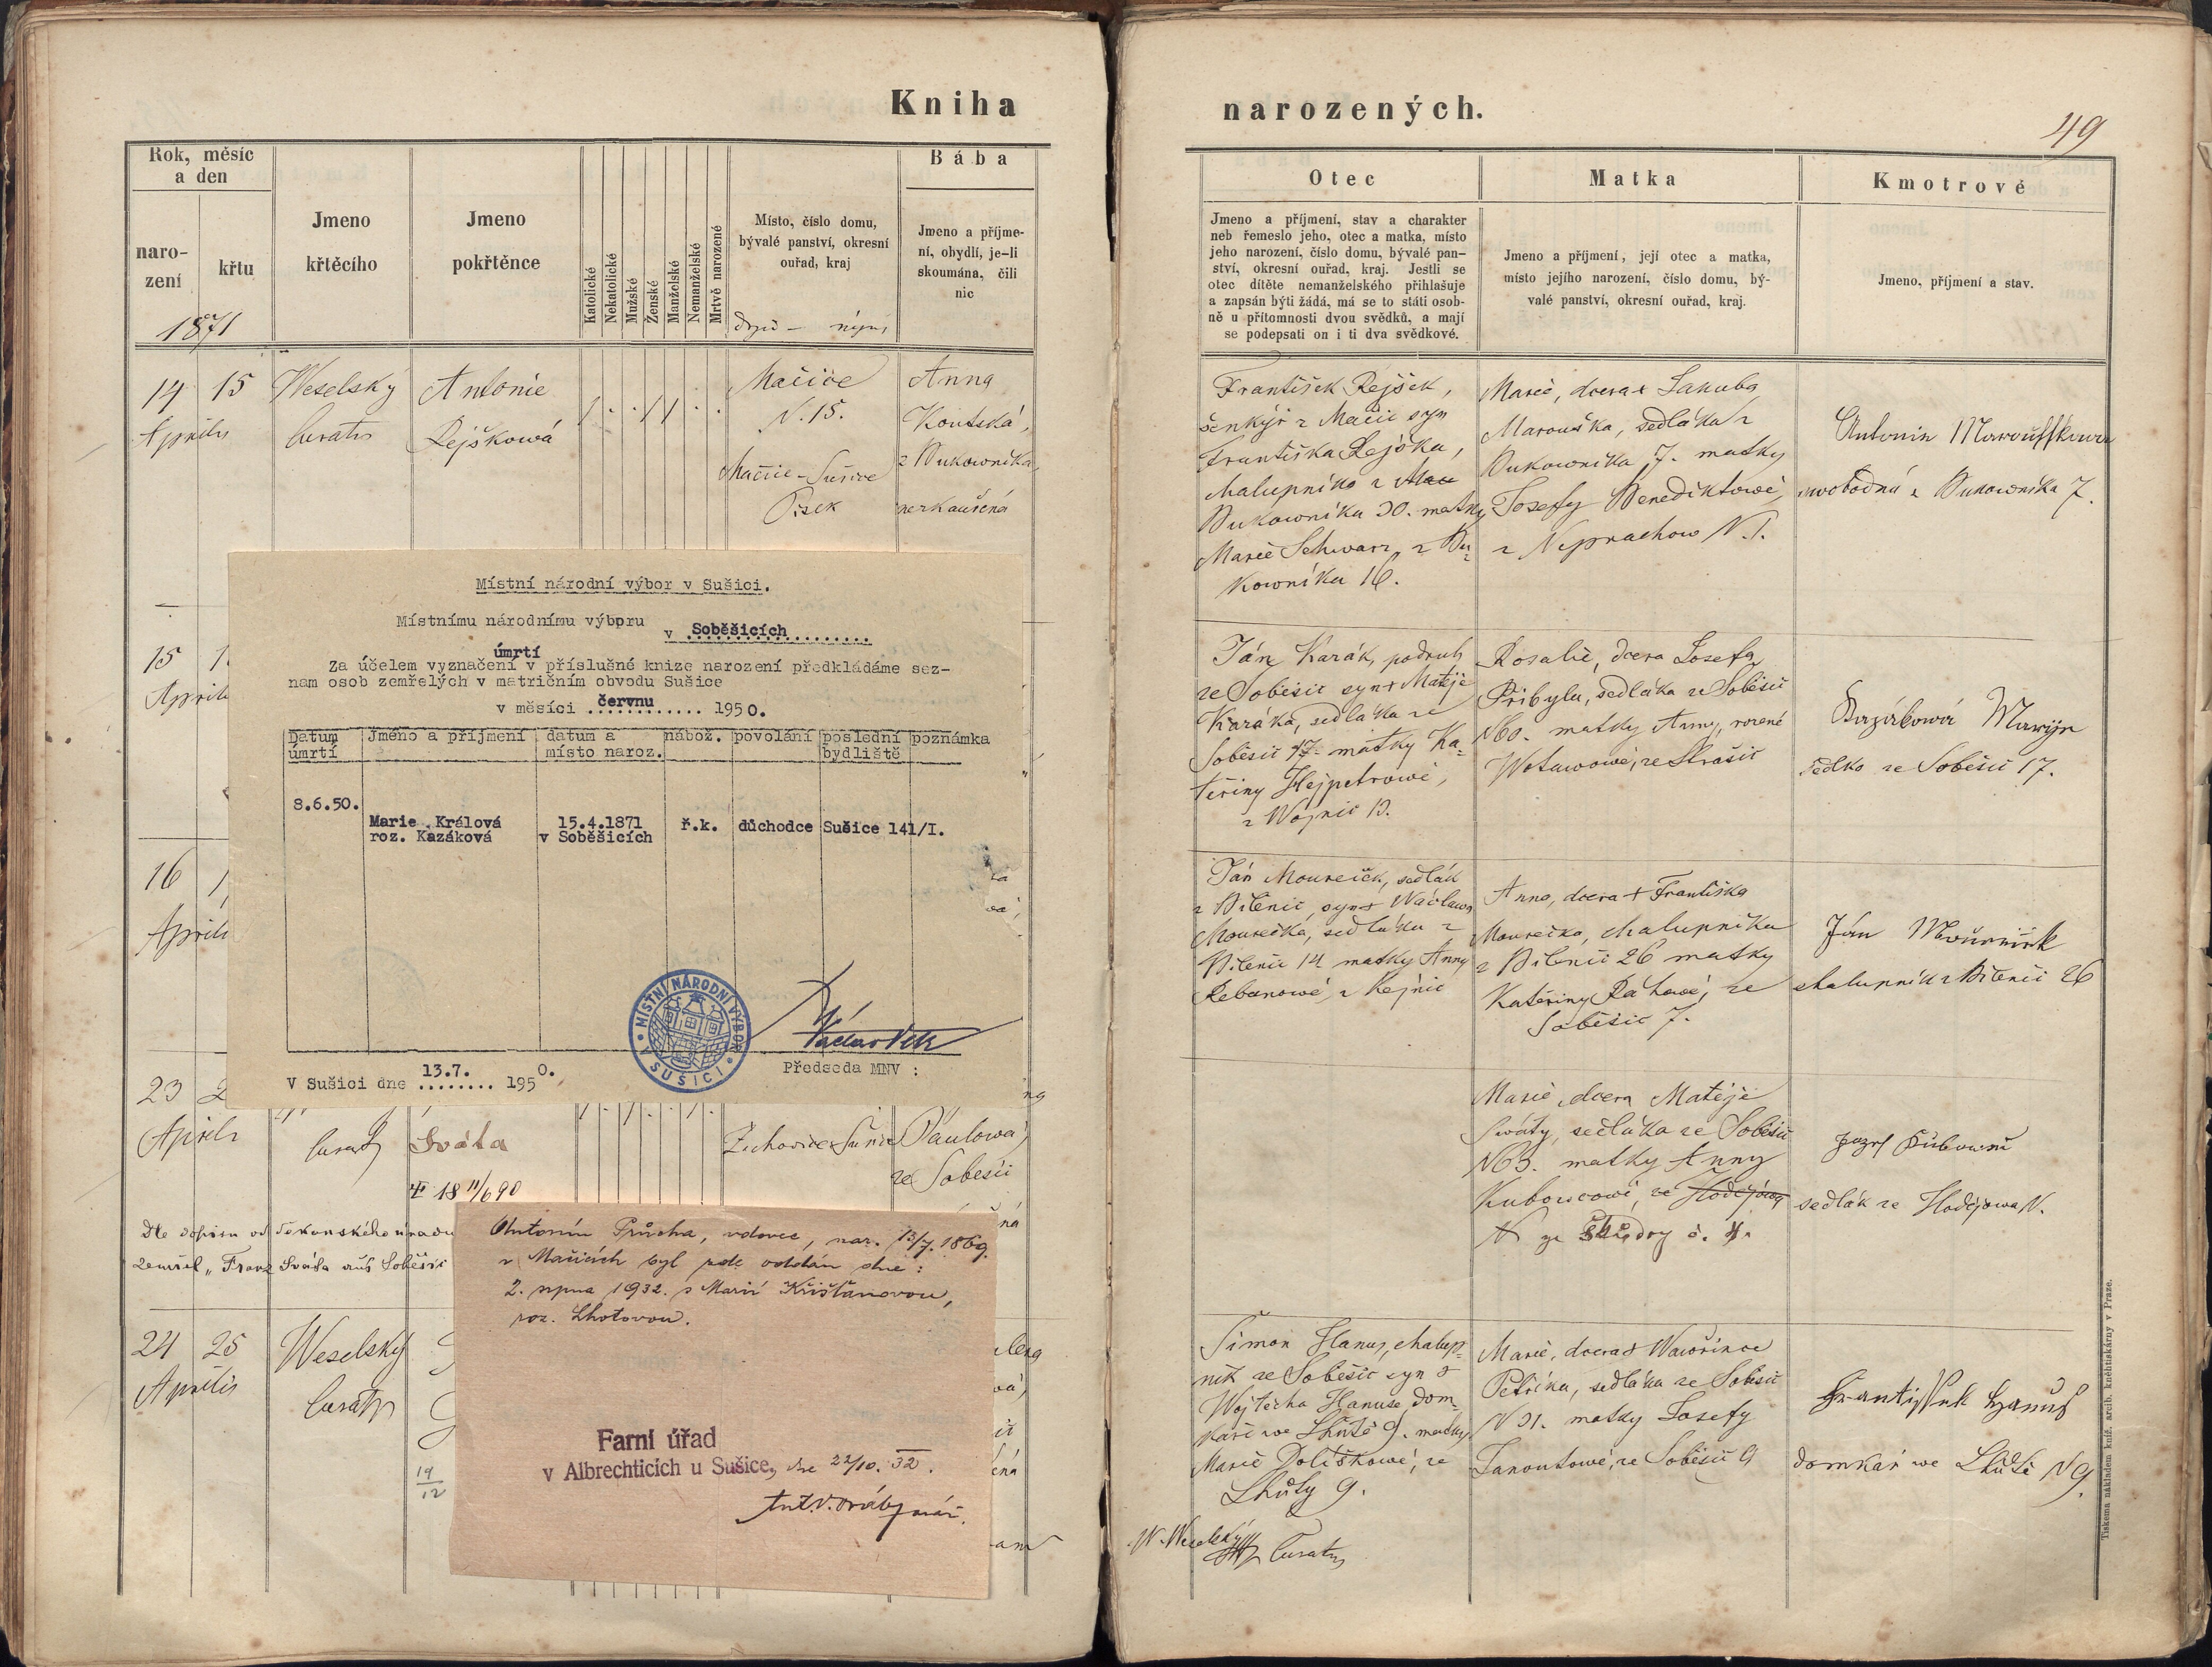 Kniha
Rok, měsíc
a den
naro-
zení
křtu
1871
Jmeno
křtěcího
Jmeno
pokřtěnce
Katolické
Nekatolické
Mužské
Ženské
Manželské
Nemanželské
Mrtvě narozené
Místo, číslo domu,
bývalé panství, okresní
ouřad, kraj
Bába
Jmeno a příjme-
ní, obydlí, je-li
skoumána, čili
nic
14 15 Weselský Antonie
Aprilis Curatus Rejšková
Mačice
N. 15.
Mačice-Sušice
Písek
Anna
Koutská,
z Bukowníka
nezkoušená
15
Aprilis
16
Aprilis
23
Aprilis
Sváta
18 11/6 90
Žichovice Sušice
Paulowá,
ze Soběšic
Dle dopisu od děkanského úřadu
zemřel „Franz Sváta aus Soběšic
24 25 Weselský
Aprilis Curatus
19
12
Místní národní výbor v Sušici.
Místnímu národnímu výboru
v Soběšicích
úmrtí
Za účelem vyznačení v příslušné knize narození předkládáme sez-
nam osob zemřelých v matričním obvodu Sušice
v měsíci červnu 1950.
Datum
úmrtí
Jméno a příjmení
datum a
místo naroz.
nábož.
povolání
poslední
bydliště
poznámka
8.6.50.
Marie Králová
roz. Kazáková
15.4.1871
v Soběšicích
ř.k.
důchodce
Sušice 141/I.
MÍSTNÍ NÁRODNÍ VÝBOR
V SUŠICI
V Sušici dne 13.7. 1950.
Předseda MNV :
Antonín Průcha, vdovec, nar. 13/7. 1869
v Mačicích byl zde oddán dne:
2. srpna 1932. s Marií Křišťanovou,
roz. Lhotovou.
Farní úřad
v Albrechticích u Sušice, dne 22/10. 32.
narozených.
49
Otec
Jmeno a příjmení, stav a charakter
neb řemeslo jeho, otec a matka, místo
jeho narození, číslo domu, bývalé pan-
ství, okresní ouřad, kraj. Jestli se
otec dítěte nemanželského přihlašuje
a zapsán býti žádá, má se to státi osob-
ně u přítomnosti dvou svědků, a mají
se podepsati on i ti dva svědkové.
Matka
Jmeno a příjmení, její otec a matka,
místo jejího narození, číslo domu, bý-
valé panství, okresní ouřad, kraj.
Kmotrové
Jmeno, příjmení a stav.
František Rejšek,
šenkýř z Mačic syn
Františka Rejška,
chalupníka z
Bukowníka 30. matky
Marie Schwarz, z Bu-
kowníku 16.
Marie, dcera + Jakuba
Marouška, sedláka z
Bukowníka 7. matky
Josefy Benediktowé,
z Neprachow N. 1.
swobodná z Bukowníka 7.
Ján Kazák, podruh
ze Soběšic syn + Matěje
Kazáka, sedláka ze
Soběšic 17. matky Ka-
teřiny Hejpetrowé,
z Wojnic 13.
Rosalie, dcera Josefa
Přibyla, sedláka ze Soběšic
N 60. matky Anny, rozené
Wotawowé, ze Strašic
Kazáková Maryja
sedlka ze Soběšic 17.
Ján Moureček, sedlák
z Bilenic, syn + Wácława
Mourečka, sedláka z
Bilenic 14. matky Anny
Rebanowé, z Kejnic
Anna, dcera + Františka
Mourečka, chalupníka
z Bilenic 26 matky
Kateřiny Rahowé, ze
Soběšic 7.
Ján Moureček
chalupník z Bilenic 26
Marie, dcera Matěje
Sváty, sedláka ze Soběšic
N 63. matky Anny
Kubowcowé, ze Hodějowa
sedlák ze Hodějowa N.
Šimon Hanuš, chalup-
ník ze Soběšic syn +
Wojtěcha Hanuše dom-
káře we Lhůtě 9. matky
Marie Poliškowé, ze
Lhůty 9.
Marie, dcera + Wawřince
Petříka, sedláka ze Soběšic
N 31. matky Josefy
Janoutowé, ze Soběšic 9
Frantissek Hanuš
domkář we Lhůtě N 9.
W. Weselský Curatus
Tiskem a nákladem kníž. arcib. knihtiskárny v Praze.